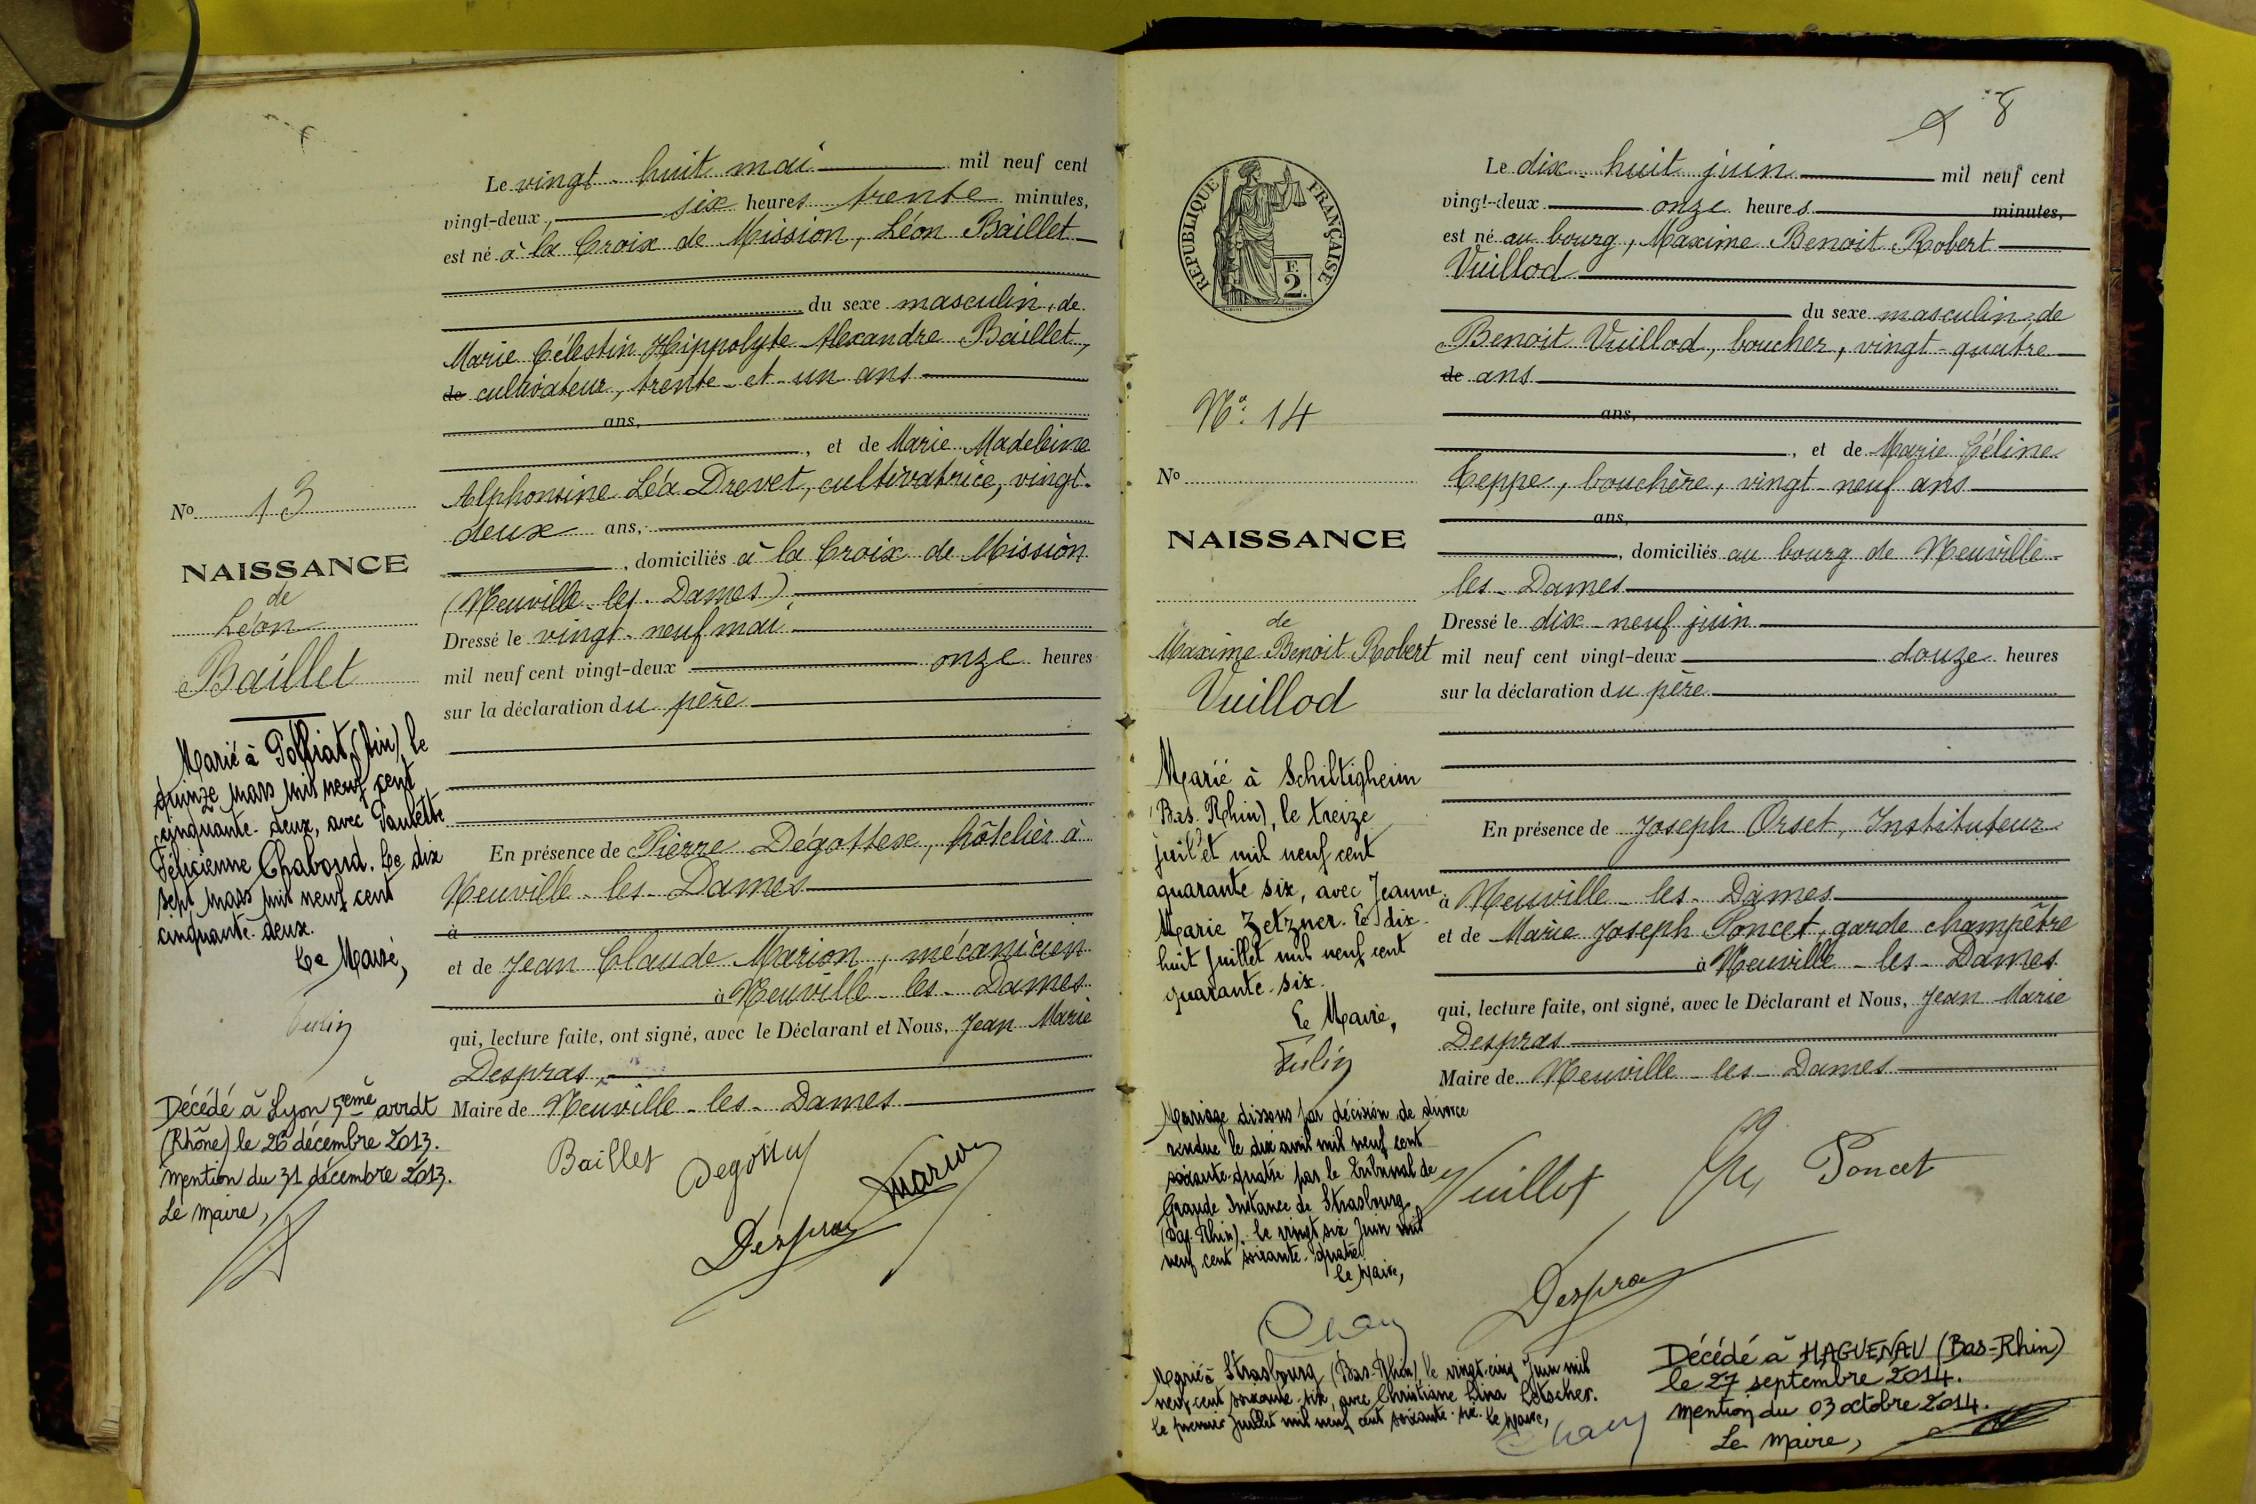 Le vingt-huit mai mil neuf cent
vingt-deux, six heures trente minutes,
est né à la Croix de Mission, Léon Baillet
du sexe masculin, de
Marie Célestin Hippolyte Alexandre Baillet,
de cultivateur, trente-et-un ans
ans,
, et de Marie Madeleine
Alphonsine Léa Drevet, cultivatrice, vingt-
deux ans,
, domiciliés à la Croix de Mission
(Neuville-les-Dames)
Dressé le vingt-neuf mai,
mil neuf cent vingt-deux onze heures
sur la déclaration du père
En présence de Pierre Dégottex, hôtelier à
Neuville-les-Dames
à
et de Jean Claude Marion, mécanicien
à Neuville-les-Dames
qui, lecture faite, ont signé, avec le Déclarant et Nous, Jean Marie
Despras,
Maire de Neuville-les-Dames
Baillet
Marion
Despras
No 13
NAISSANCE
de
Léon
Baillet
Marié à Polliat (Ain) le
quinze mars mil neuf cent
cinquante-deux, avec Paulette
Félicienne Chaboud. Le dix
sept mars mil neuf cent
cinquante-deux.
Le Maire,
Décédé à Lyon 5ème arrdt
(Rhône) le 26 décembre 2013.
Mention du 31 décembre 2013.
Le Maire,
8
REPUBLIQUE FRANÇAISE
F.
2.
Le dix-huit juin mil neuf cent
vingt-deux onze heures minutes,
est né au bourg, Maxime Benoit Robert
Vuillod
du sexe masculin, de
Benoit Vuillod, boucher, vingt-quatre
de ans
ans,
, et de Marie Céline
Teppe, bouchère, vingt-neuf ans
ans,
, domiciliés au bourg de Neuville-
les-Dames
Dressé le dix-neuf juin
mil neuf cent vingt-deux douze heures
sur la déclaration du père
En présence de Joseph Orset, Instituteur
à Neuville-les-Dames
et de Marie Joseph Poncet, garde champêtre
à Neuville-les-Dames
qui, lecture faite, ont signé, avec le Déclarant et Nous, Jean Marie
Despras
Maire de Neuville-les-Dames
Vuillod
Poncet
Despras
No. 14
No
NAISSANCE
de
Maxime Benoit Robert
Vuillod
Marié à Schiltigheim
(Bas-Rhin), le treize
juillet mil neuf cent
quarante six, avec Jeanne
Marie Zetzner. Le dix-
huit Juillet mil neuf cent
quarante-six.
Le Maire,
Mariage dissous par décision de divorce
rendue le dix avril mil neuf cent
soixante-quatre par le Tribunal de
Grande Instance de Strasbourg
(Bas-Rhin). le vingt six Juin mil
neuf cent soixante-quatre.
le Maire,
Marié à Strasbourg (Bas-Rhin) le vingt-cinq Juin mil
neuf cent soixante-six, avec Christiane Lina
le premier Juillet mil neuf cent soixante-six. le Maire,
Décédé à HAGUENAU (Bas-Rhin)
le 27 septembre 2014.
Mention du 03 octobre 2014.
Le Maire,